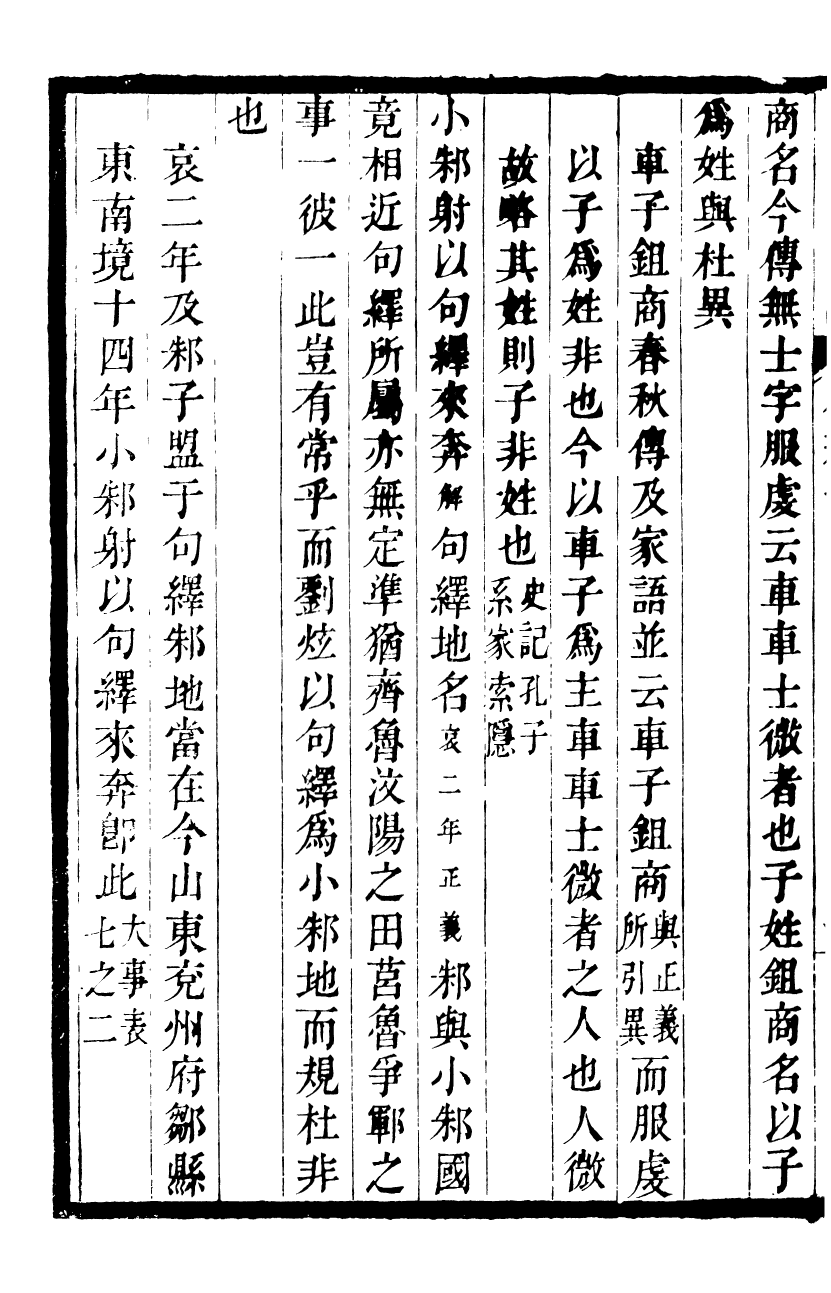 商名今傳無士字服虔云車車士微者也子姓鉏商名以子
爲姓與杜異
車子鉏商春秋傳及家語並云車子鉏商與正義所引異而服虔
以子爲姓非也今以車子爲主車車士微者之人也人微
故略其姓則子非姓也史記孔子系家索隱
小邾射以句繹來奔解句繹地名哀二年正義邾與小邾國
竟相近句繹所屬亦無定準猶齊魯汶陽之田莒魯爭鄆之
事一彼一此豈有常乎而劉炫以句繹爲小邾地而規杜非
也
哀二年及邾子盟于句繹邾地當在今山東兖州府鄒縣
東南境十四年小邾射以句繹來奔卽此大事表七之二